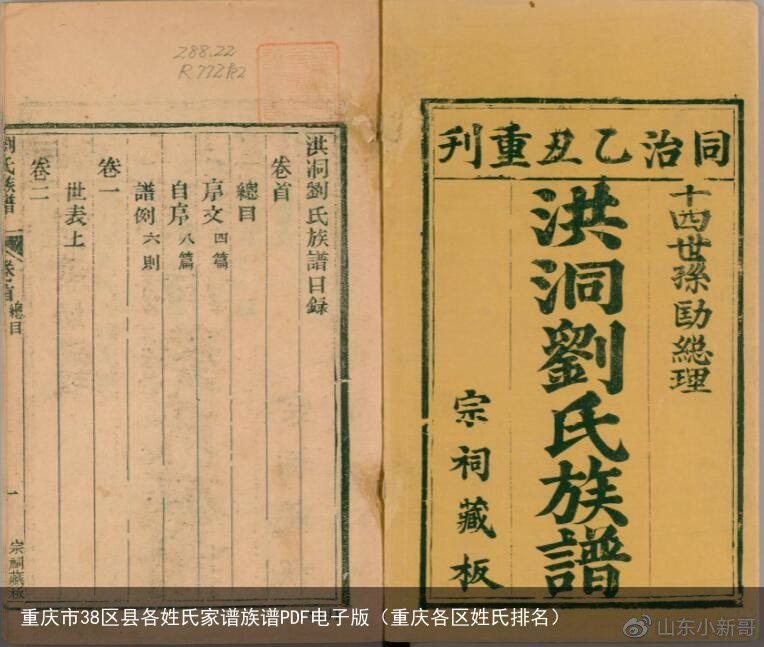 同治乙丑重刊
十四世孫總理
洪洞劉氏族譜
宗祠藏板
288.22
洪洞劉氏族譜目錄
卷首
總目
序文 四篇
自序 八篇
譜例 六則
卷一
世表上
卷二
劉氏族譜 卷首 總目 一 宗祠藏板
重庆市38区县各姓氏家谱族谱PDF电子版（重庆各区姓氏排名）
山东小新哥